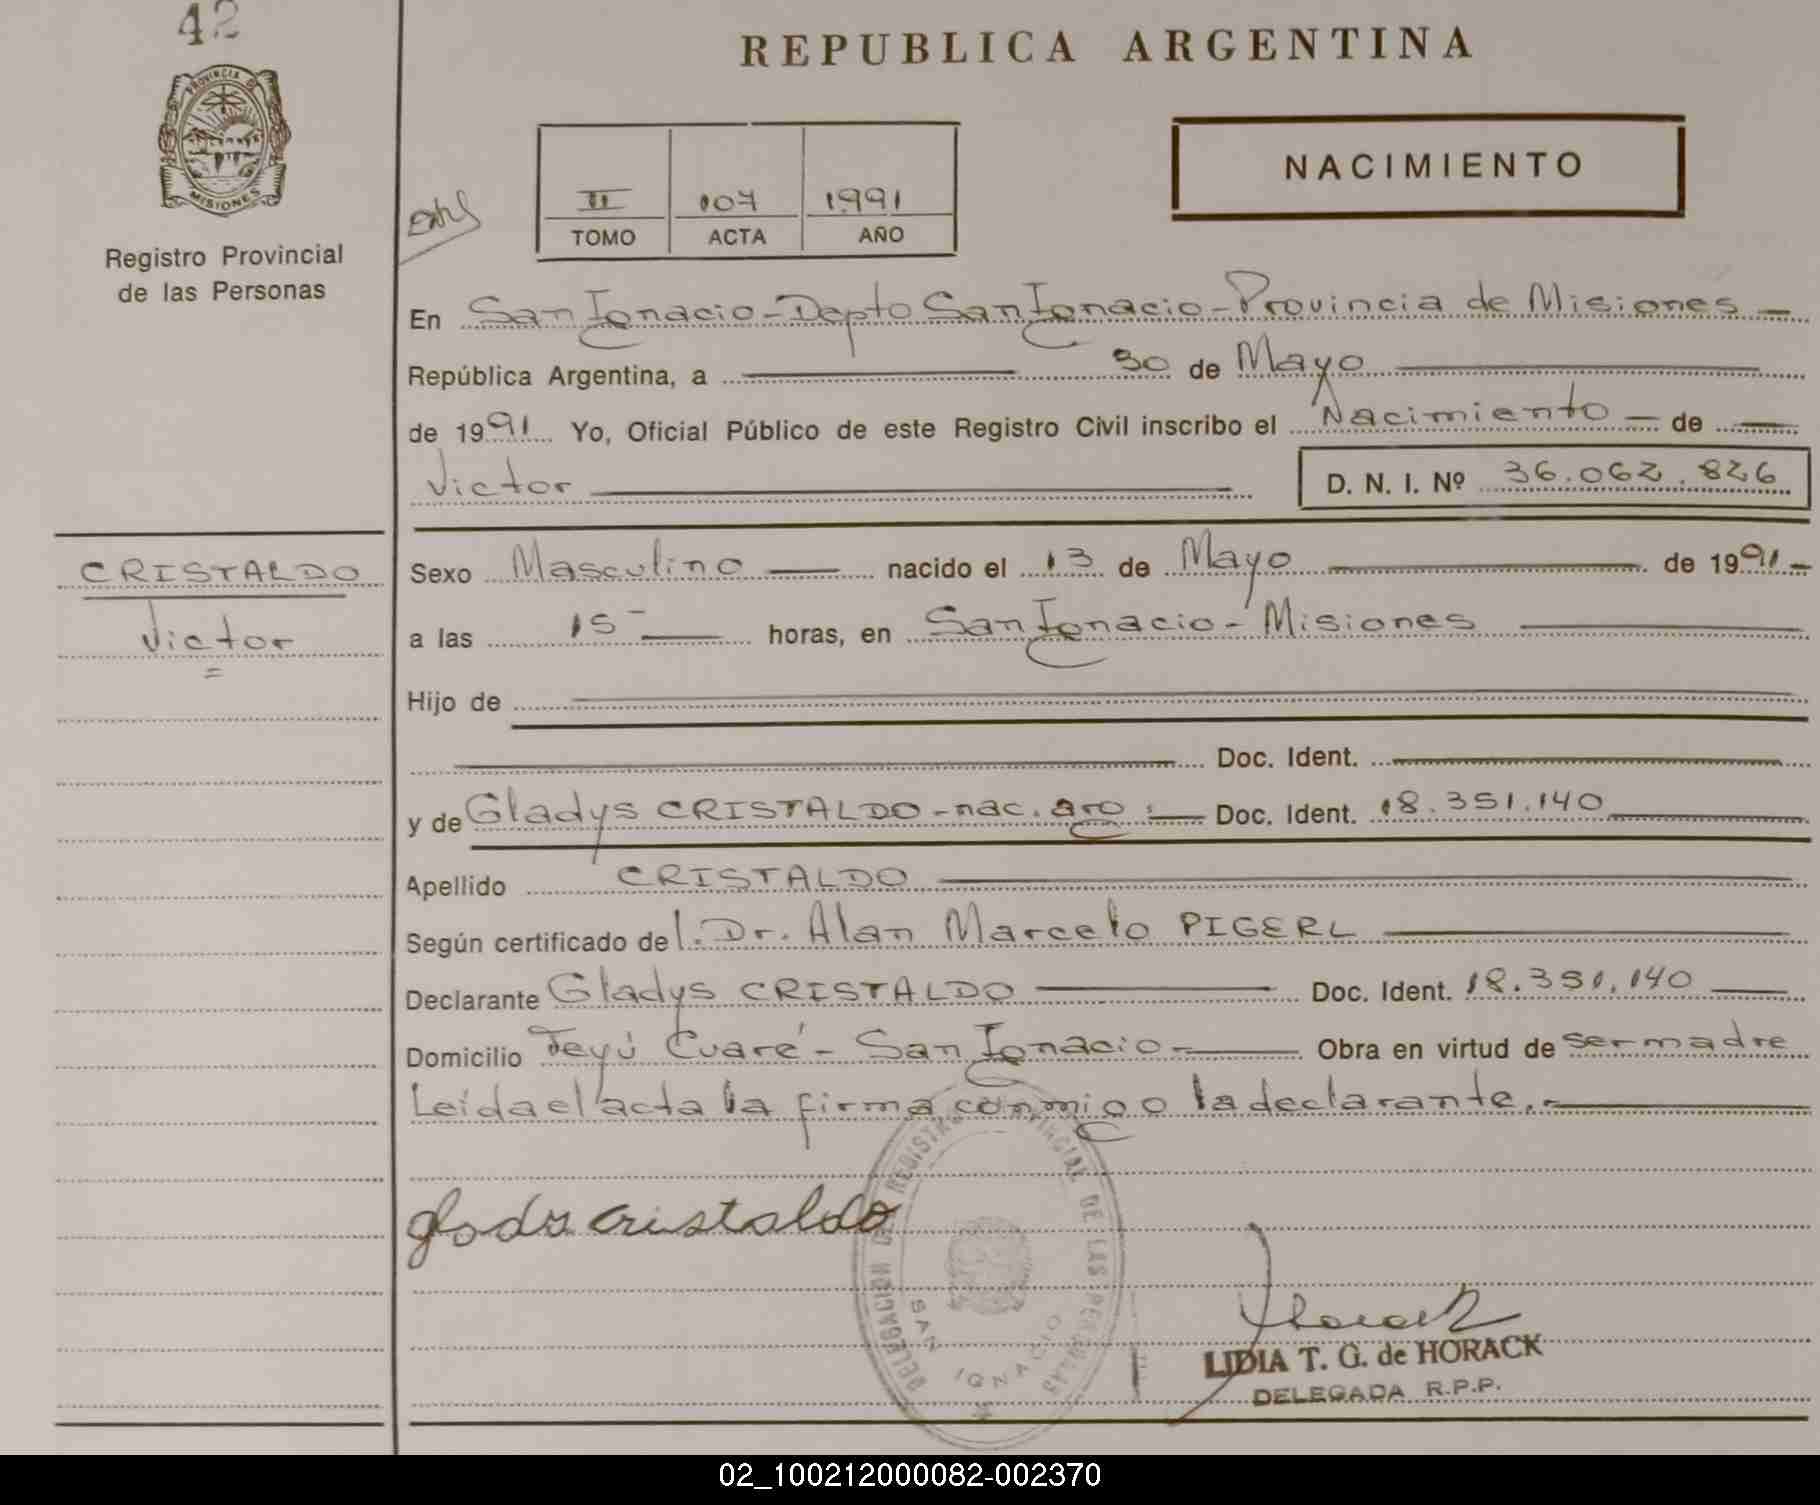 42
PROVINCIA DE
MISIONES
Registro Provincial
de las Personas
REPUBLICA ARGENTINA
II 107 1991
TOMO ACTA AÑO
NACIMIENTO
En San Ignacio - Depto San Ignacio - Provincia de Misiones -
República Argentina, a 30 de Mayo
de 1991 Yo, Oficial Público de este Registro Civil inscribo el Nacimiento - de
Victor D. N. I. Nº 36.062.826
CRISTALDO
Victor
Sexo Masculino nacido el 13 de Mayo de 1991 -
a las 15 horas, en San Ignacio - Misiones
Hijo de
Doc. Ident.
y de Gladys CRISTALDO - nac. arg: Doc. Ident. 18.351.140
Apellido CRISTALDO
Según certificado del. Dr. Alan Marcelo PIGERL
Declarante Gladys CRISTALDO Doc. Ident. 18.351.140
Domicilio Teyú Cuaré - San Ignacio - Obra en virtud de ser madre
Leída el acta la firma conmigo la declarante. -
DELEGACION DE REGISTRO PROVINCIAL DE LAS PERSONAS
SAN IGNACIO
glady cristaldo
Horack
LIDIA T. G. de HORACK
DELEGADA R.P.P.
02_100212000082-002370